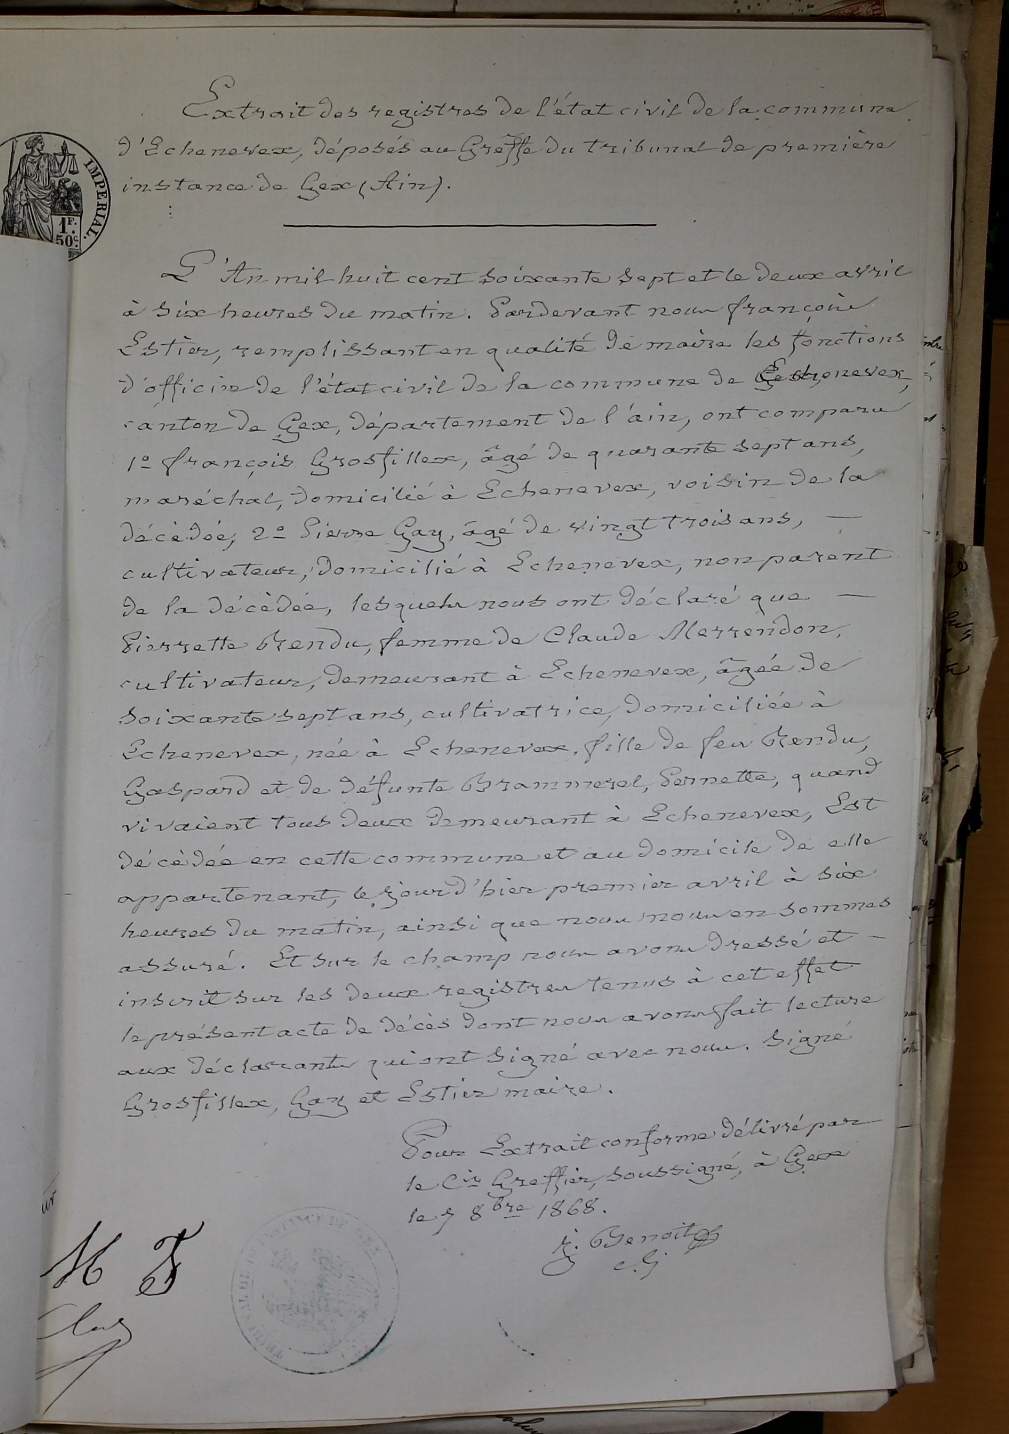 Extrait des registres de l'état civil de la commune
d'Echenevex, déposés au Greffe du tribunal de première
instance de Gex (Ain).
IMPERIAL.
1F.
50c.
L'An mil huit cent soixante sept et le deux avril
à six heures du matin. Pardevant nous françois
Estier, remplissant en qualité de maire les fonctions
d'officier de l'état civil de la commune de Echenevex,
canton de Gex, département de l'ain, ont comparu
1º françois Grosfillex, âgé de quarante sept ans,
maréchal, domicilié à Echenevex, voisin de la
décèdée, 2º Pierre Gay, âgé de vingt trois ans, —
cultivateur, domicilié à Echenevex, non parent
de la décèdée, lesquels nous ont déclaré que —
Pierrette Rendu, femme de Claude Merrendon,
cultivateur, demeurant à Echenevex, âgée de
soixante sept ans, cultivatrice, domiciliée à
Echenevex, née à Echenevex, fille de feu Rendu,
Gaspard et de défunte Brammerel, Pernette, quand
vivaient tous deux demeurant à Echenevex, Est
décèdée en cette commune et au domicile de elle
appartenant, le jour d'hier premier avril à six
heures du matin, ainsi que nous nous en sommes
assuré. Et sur le champ nous avons dressé et —
inscrit sur les deux registres tenus à cet effet
le présent acte de décès dont nous avons fait lecture
aux déclarants qui ont signé avec nous. Signé
Grosfillex, Gay et Estier maire.
Pour Extrait conforme délivré par
le Cis Greffier, soussigné, à Gex
le 7 8bre 1868.
j. Benoit
c. G